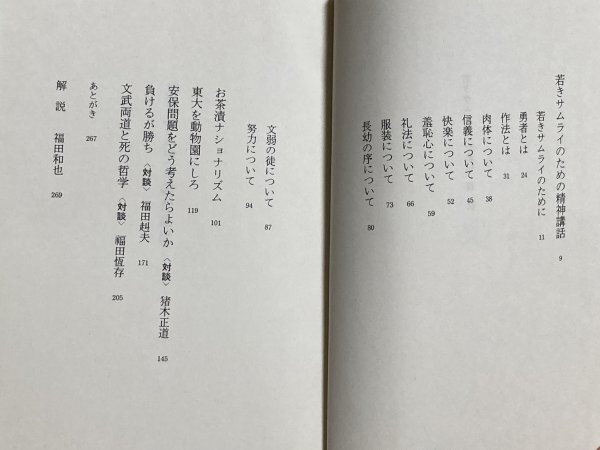 若きサムライのための精神講話 9
若きサムライのために 11
勇者とは 24
作法とは 31
肉体について 38
信義について 45
快楽について 52
羞恥心について 59
礼法について 66
服装について 73
長幼の序について 80
文弱の徒について 87
努力について 94
お茶漬ナショナリズム 101
東大を動物園にしろ 119
安保問題をどう考えたらよいか〈対談〉猪木正道 145
負けるが勝ち〈対談〉福田赳夫 171
文武両道と死の哲学〈対談〉福田恆存 205
あとがき 267
解説 福田和也 269